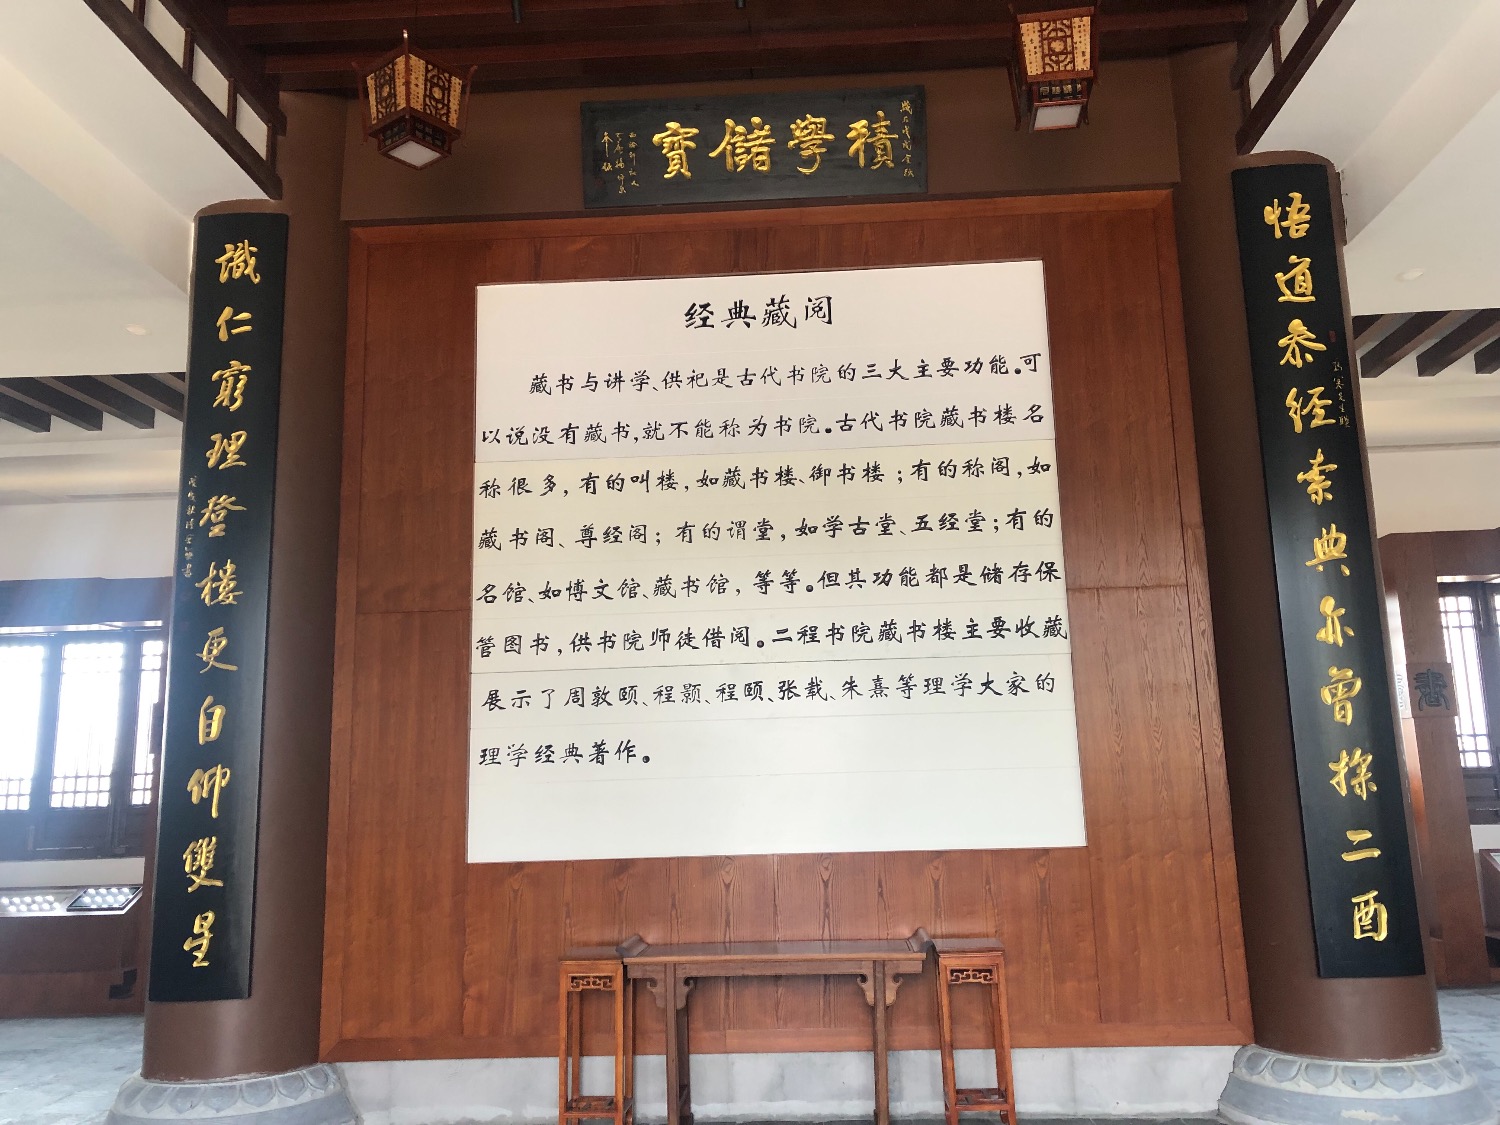 積學儲寶
悟道参經索典亦曾探二酉
識仁窮理登樓更自仰雙星
经典藏阅
藏书与讲学、供祀是古代书院的三大主要功能。可
以说没有藏书,就不能称为书院。古代书院藏书楼名
称很多,有的叫楼,如藏书楼、御书楼;有的称阁,如
藏书阁、尊经阁;有的谓堂,如学古堂、五经堂;有的
名馆、如博文馆、藏书馆,等等。但其功能都是储存保
管图书,供书院师徒借阅。二程书院藏书楼主要收藏
展示了周敦颐、程颢、程颐、张载、朱熹等理学大家的
理学经典著作。